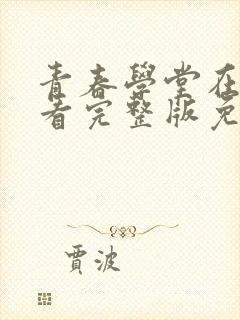 青春學堂在
看完整版免
賈波